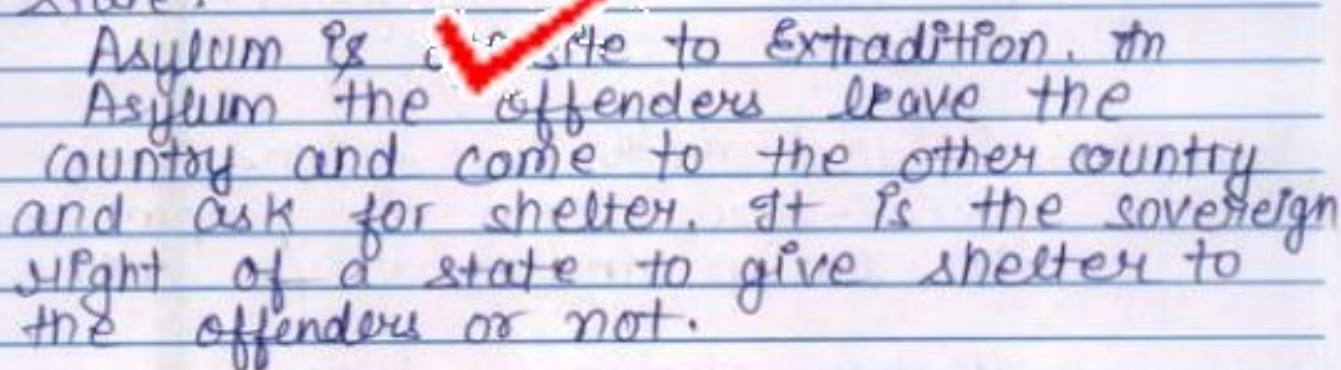 Asylum is to Extradition. In
Asylum the offenders leave the
country and come to the other country
and ask for shelter. It is the sovereign
right of a state to give shelter to
the offenders or not.